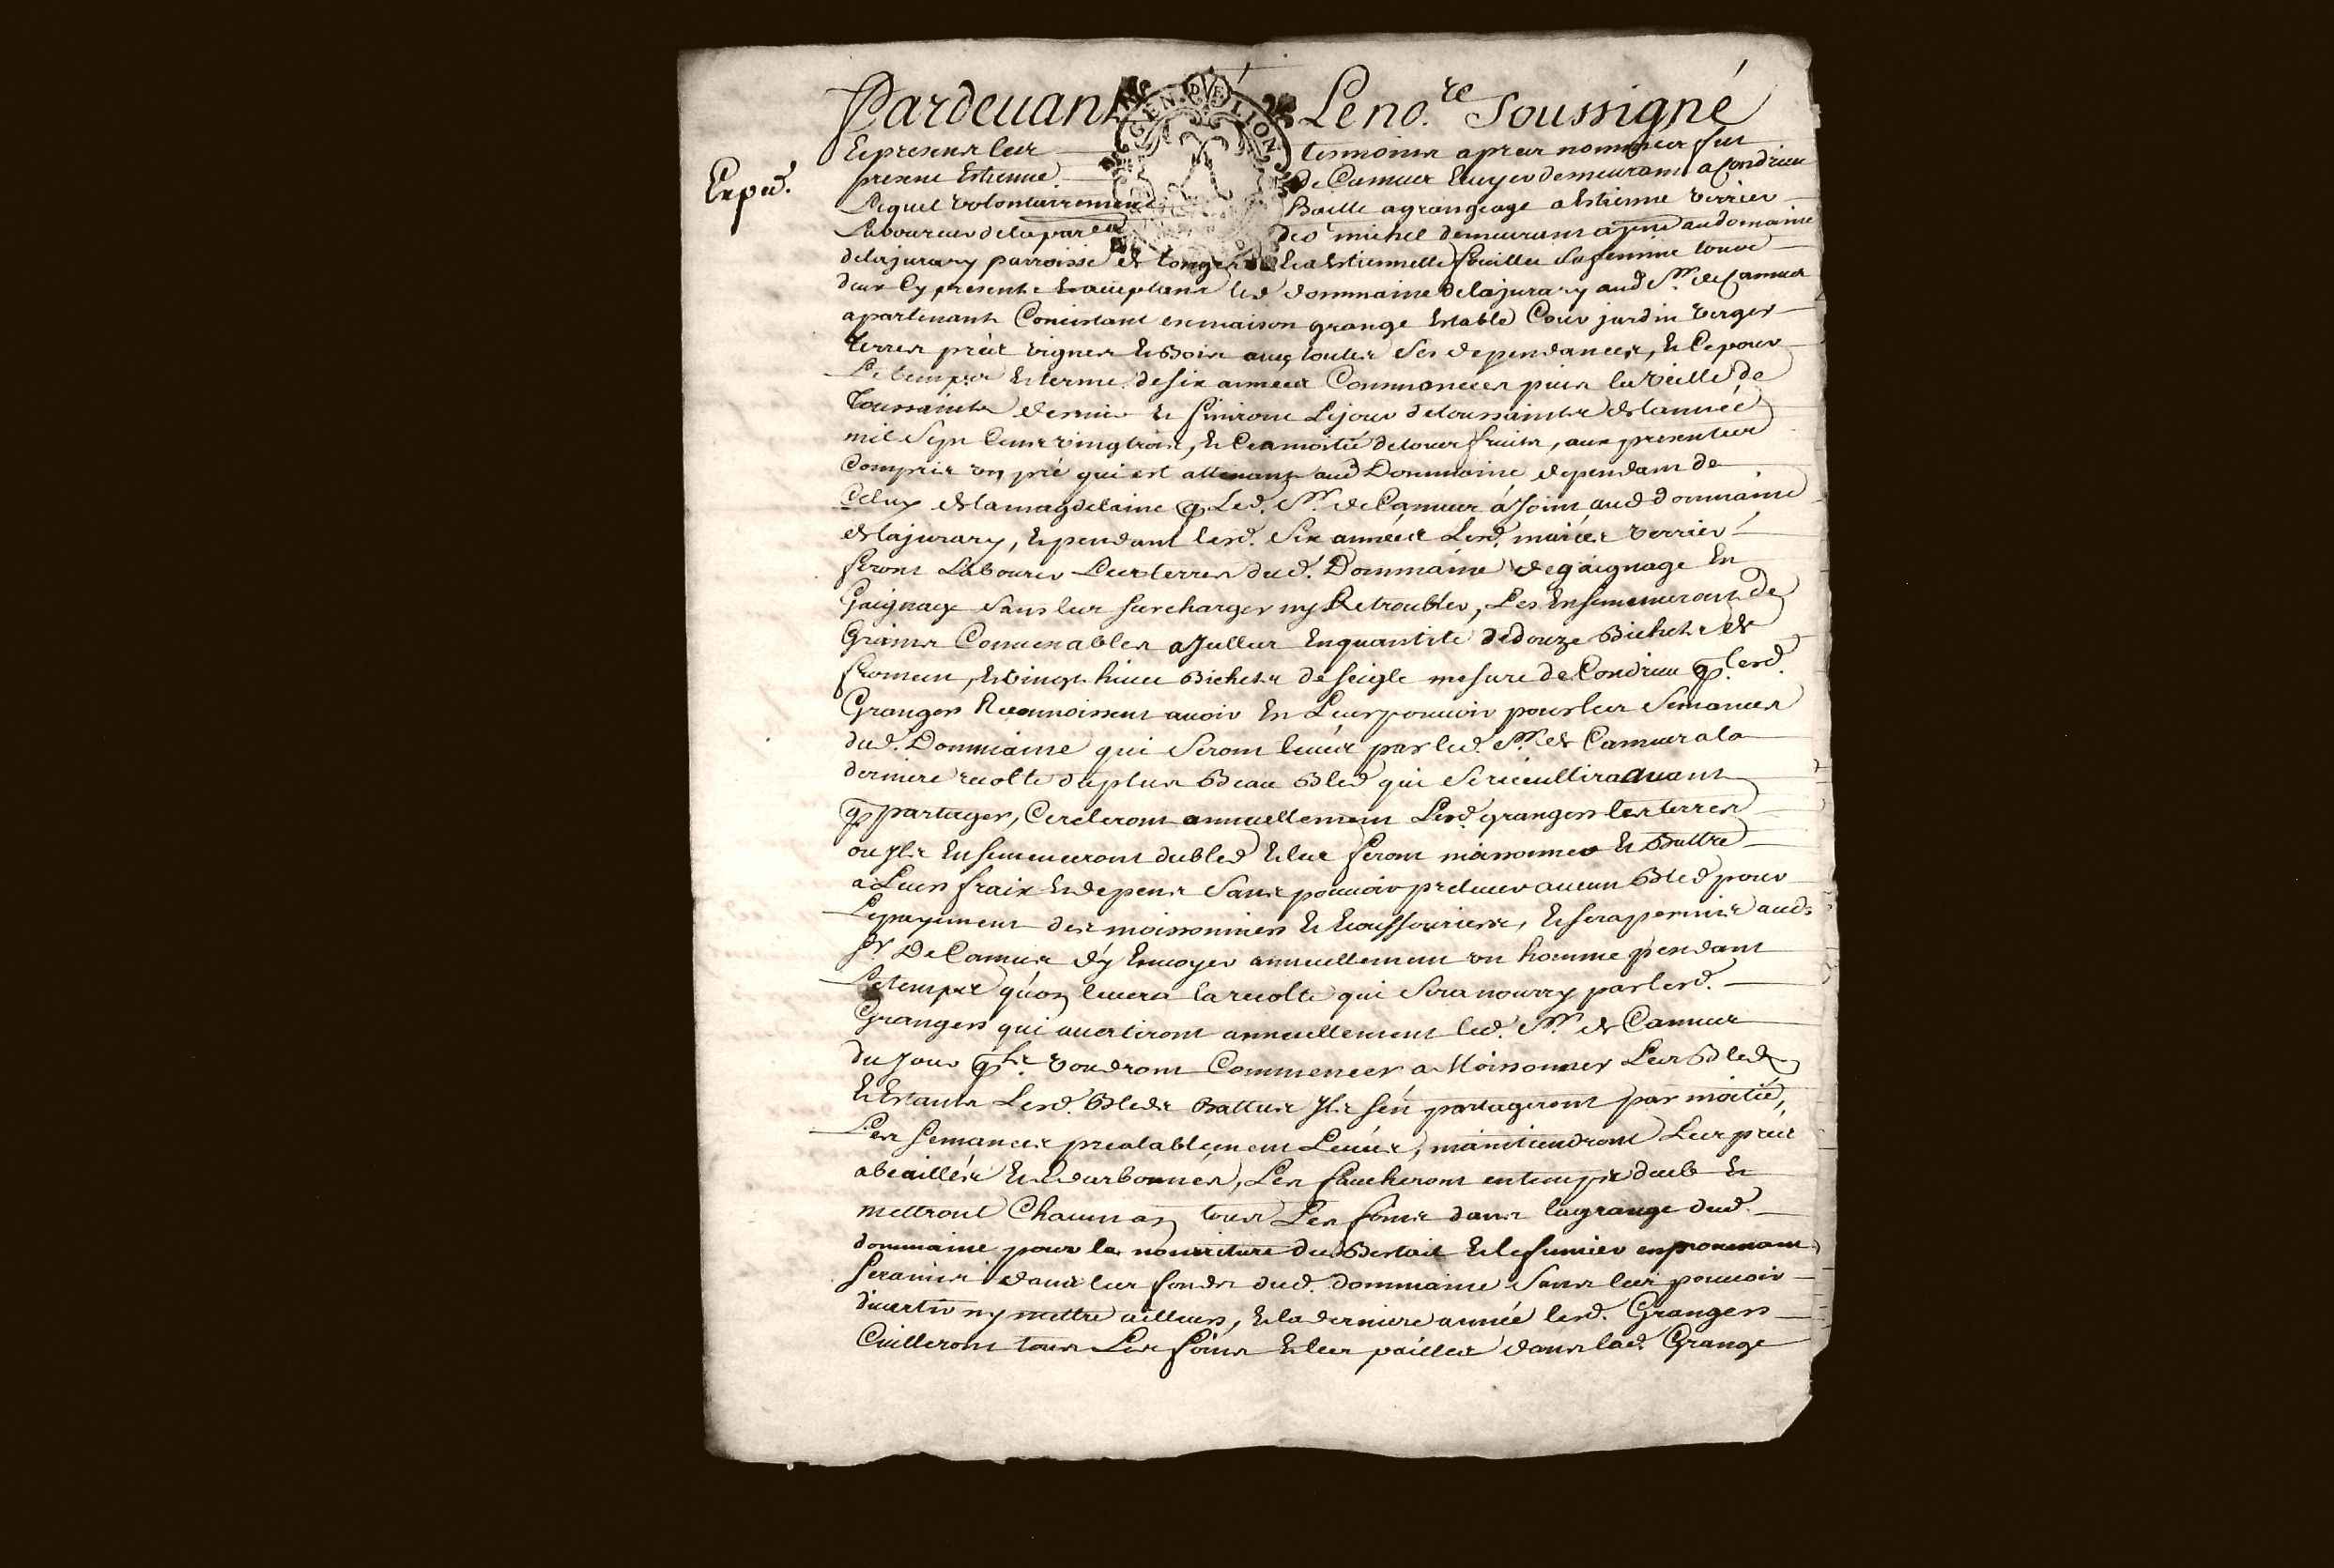 Pardeuant Le no.re Soussigné
Expéd.
Et presens les tesmoins apres nommes fut
presens Estienne de Camus Escuyer demeurant a Condrieu
Lequel volontairement Baille a grangeage a Estienne Verrier
Laboureur de la par de St michel demeurant a present au domaine
de la jurary parroisse de Longes Et a Estiennette fouilles sa femme tous
deux Cy presents Et acceptans led. dommaine de la jurary aud. Sr. de Camus
apartenant Consistant en maison grange Estable Cour jardin verger
terres prés vignes Et Bois avec toutes Ses dependances, Et Ce pour
Le temps Et terme de six années Commancées puis la veille de
Toussaints dernier Et finiront Le jour de toussaints de lannée
mil Sept Cens vingtrois, Et Ce a moitié de tous fruits, aux presentes
Compris un pré qui est attenant aud. Dommaine dependant de
Celuy de la magdelaine q. Led. Sr. de Camus a Joint aud. dommaine
de la jurary, Et pendant lesd. Six années Lesd. mariés Verrier
feront Labourer Les terres dud. Dommaine de gaignage En
Gaignage Sans les surcharger ny Retroubler, Les Ensemenceront de
Grains Convenables a Jcelles En quantité de douze Bichets de
froment, Et vingt huict Bichets de seigle mesure de Condrieu q. lesd.
Grangers Reconnoissent avoir En Leur pouvoir pour les Semances
dud. Dommaine qui Seront levés par led. Sr. de Camus a la
derniere recolte du plus Beau Bled qui Se recullira avant
q. partager, Cercleront annuellement Lesd. grangers les terres
ou Jls Ensemenceront du bled Et les feront moissonner Et Battre
a Leurs fraix Et depens Sans pouvoir prelever aucun Bled pour
Le payement des moissonniers Et Escoussouriers, Et sera permis aud.
Sr. De Camus d'y Envoyer annuellement un homme pendant
Le temps qu'on levera la recolte qui Sera nourry par lesd.
Grangers qui avertiront annuellement led. Sr. de Camus
du Jour q. Jls voudront Commencer a Moissonner Les Bleds
Et Estants Lesd. Bleds Battus Jls s'en partageront par moitié,
Les semances prealablement Levées, maintiendront Les prés
abeaillés Et Darbonnés, Les faucheront en temps deub Et
mettront Chacun an tous Les foins dans la grange dud.
dommaine pour la nourriture du Bestail Et le fumier en provenant
sera mis dans les fonds dud. dommaine Sans les pouvoir
divertir ny mettre ailleurs, Et la derniere année lesd. Grangers
Cuilleront tous Les foins Et les pailles dans lad. Grange
GEN. DE LION